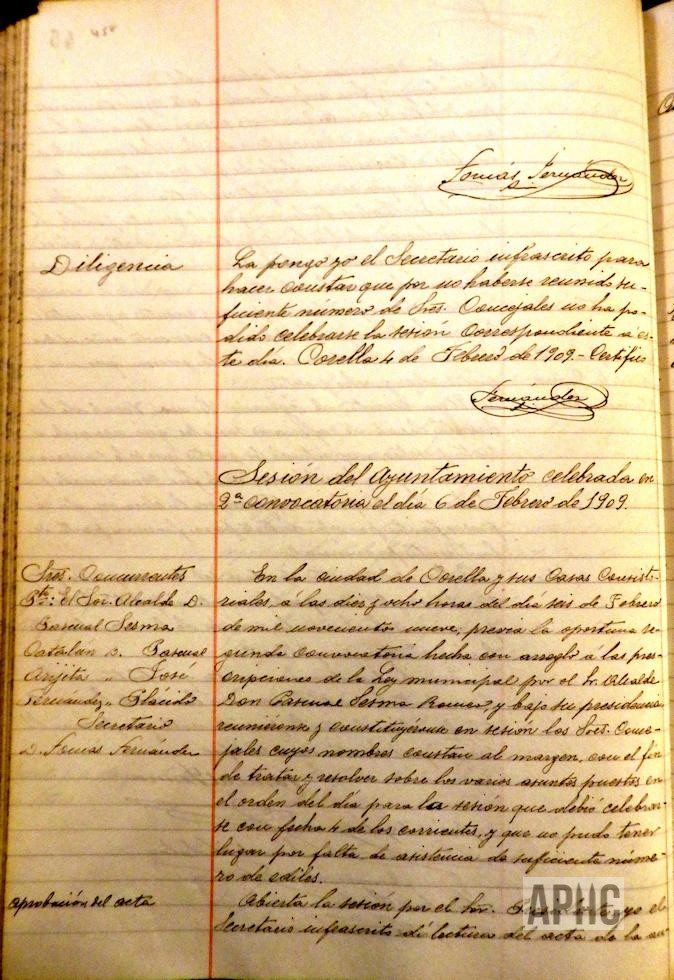 Tomás Fernández
Diligencia
La pongo yo el Secretario infrascrito para
hacer constar que por no haberse reunido su-
ficiente número de Sres. Concejales no ha po-
dido celebrarse la sesión correspondiente á es-
te día. Corella 4 de Febrero de 1909.- Certifico
Fernández
Sesión del Ayuntamiento celebrada en
2ª convocatoria el día 6 de Febrero de 1909.
Sres. Concurrentes
Pte: El Sor. Alcalde D.
Pascual Sesma
Catalán D. Pascual
Arijita " José
Fernández " Plácido
Secretario
D. Tomás Fernández
En la ciudad de Corella y sus Casas Consisto-
riales, á las diez y ocho horas del día seis de Febrero
de mil novecientos nueve, previa la oportuna se-
gunda convocatoria hecha con arreglo á las pres-
cripciones de la Ley municipal por el Sr. Alcalde
Don Pascual Sesma y bajo su presidencia
reuniéronse y constituyéronse en sesión los Sres. Conce-
jales cuyos nombres constan al margen, con el fin
de tratar y resolver sobre los varios asuntos puestos en
el orden del día para la sesión que debió celebrar-
se con fecha 4 de los corrientes, y que no pudo tener
lugar por falta de asistencia de suficiente núme-
ro de ediles.
aprobación del acta
Abierta la sesión por el Sor. Presidente, yo el
Secretario infrascrito dí lectura del acta de la an
APHC